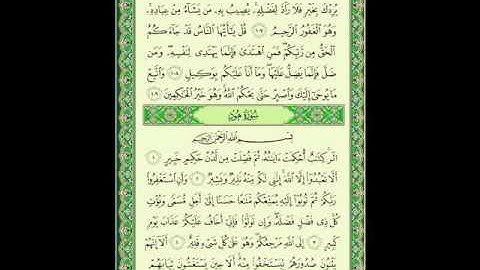 يُرِدْكَ بِخَيْرٍ فَلَا رَآدَّ لِفَضْلِهِۦ ۚ يُصِيبُ بِهِۦ مَن يَشَآءُ مِنْ عِبَادِهِۦ ۚ
وَهُوَ ٱلْغَفُورُ ٱلرَّحِيمُ ١٠٧ قُلْ يَـٰٓأَيُّهَا ٱلنَّاسُ قَدْ جَآءَكُمُ
ٱلْحَقُّ مِن رَّبِّكُمْ ۖ فَمَنِ ٱهْتَدَىٰ فَإِنَّمَا يَهْتَدِى لِنَفْسِهِۦ ۖ وَمَن
ضَلَّ فَإِنَّمَا يَضِلُّ عَلَيْهَا ۖ وَمَآ أَنَا۠ عَلَيْكُم بِوَكِيلٍ ١٠٨ وَٱتَّبِعْ
مَا يُوحَىٰٓ إِلَيْكَ وَٱصْبِرْ حَتَّىٰ يَحْكُمَ ٱللَّهُ ۚ وَهُوَ خَيْرُ ٱلْحَـٰكِمِينَ ١٠٩
سُورَةُ هُودٍ
بِسْمِ ٱللَّهِ ٱلرَّحْمَـٰنِ ٱلرَّحِيمِ
الٓر ۚ كِتَـٰبٌ أُحْكِمَتْ ءَايَـٰتُهُۥ ثُمَّ فُصِّلَتْ مِن لَّدُنْ حَكِيمٍ خَبِيرٍ ١
أَلَّا تَعْبُدُوٓا۟ إِلَّا ٱللَّهَ ۚ إِنَّنِى لَكُم مِّنْهُ نَذِيرٌ وَبَشِيرٌ ٢ وَأَنِ ٱسْتَغْفِرُوا۟
رَبَّكُمْ ثُمَّ تُوبُوٓا۟ إِلَيْهِ يُمَتِّعْكُم مَّتَـٰعًا حَسَنًا إِلَىٰٓ أَجَلٍ مُّسَمًّى وَيُؤْتِ
كُلَّ ذِى فَضْلٍ فَضْلَهُۥ ۖ وَإِن تَوَلَّوْا۟ فَإِنِّىٓ أَخَافُ عَلَيْكُمْ عَذَابَ يَوْمٍ
كَبِيرٍ ٣ إِلَى ٱللَّهِ مَرْجِعُكُمْ ۖ وَهُوَ عَلَىٰ كُلِّ شَىْءٍ قَدِيرٌ ٤ أَلَآ إِنَّهُمْ
يَثْنُونَ صُدُورَهُمْ لِيَسْتَخْفُوا۟ مِنْهُ ۚ أَلَا حِينَ يَسْتَغْشُونَ ثِيَابَهُمْ